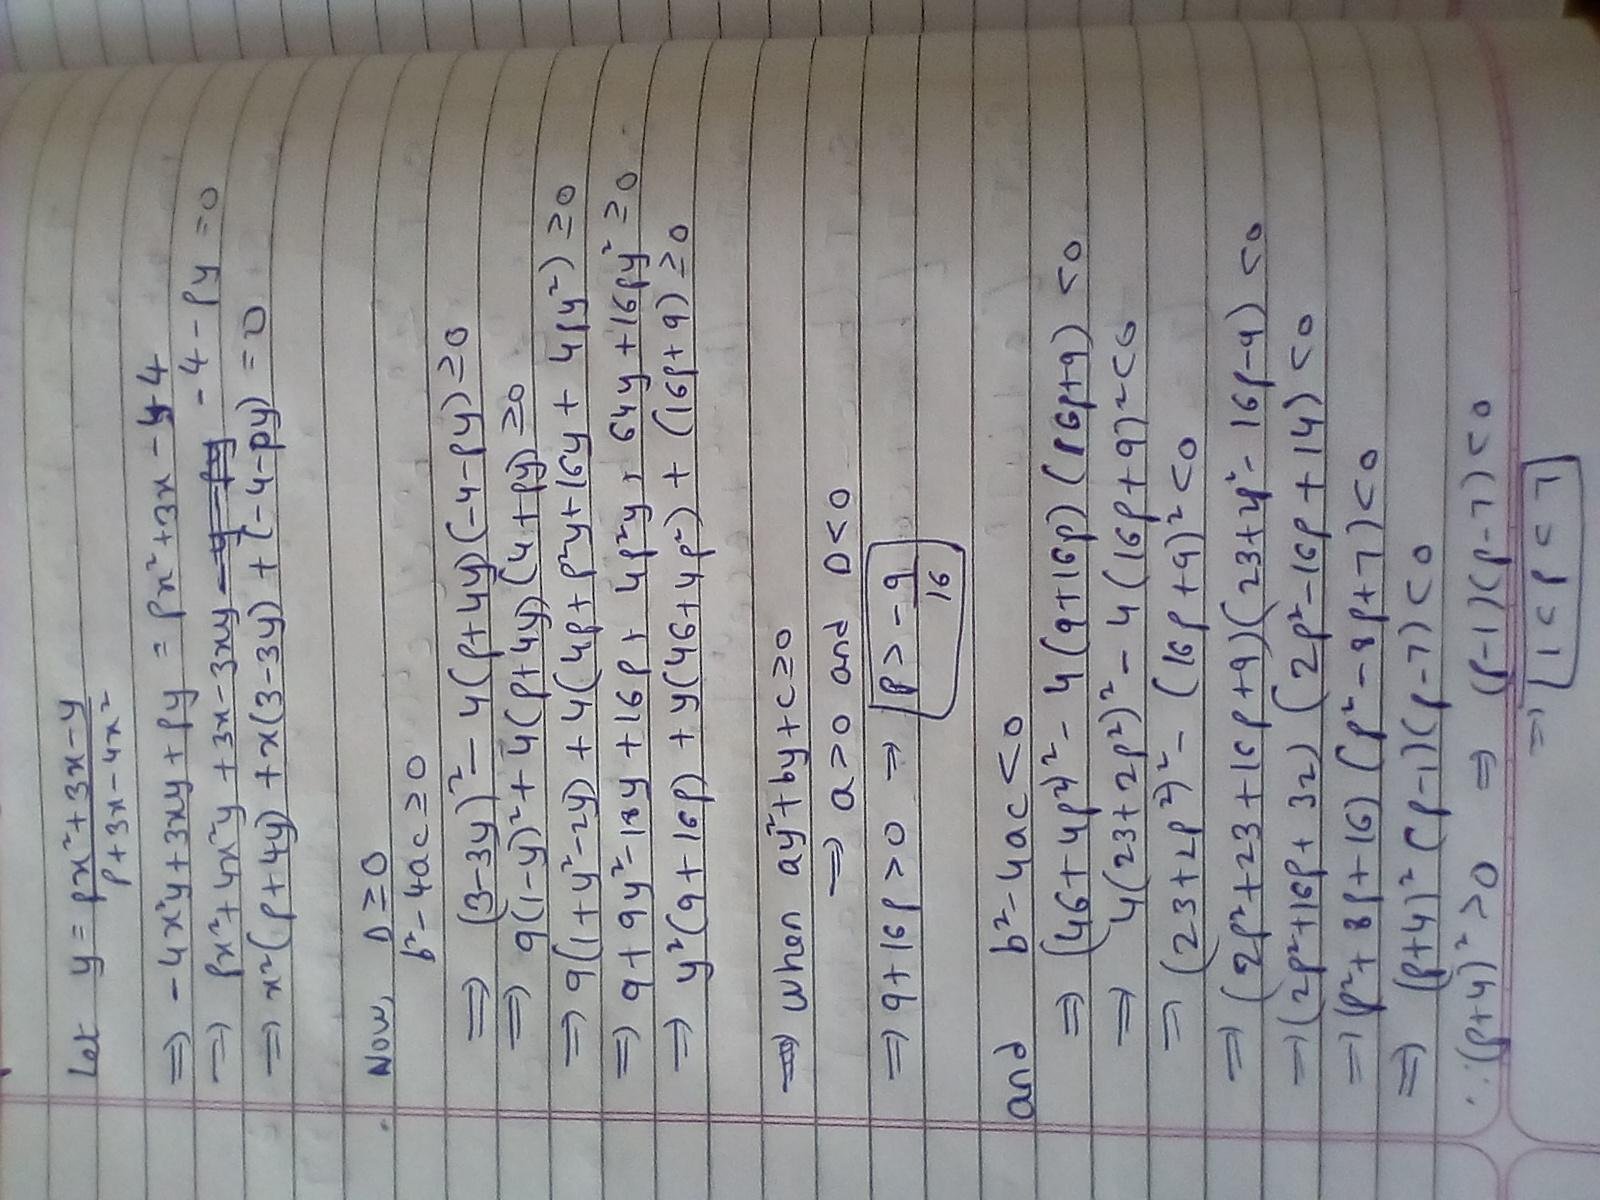 Let y = px²+3x-4 / p+3x-4x²
⇒ -4x²y+3xy+py = px²+3x-4
⇒ px²+4x²y+3x-3xy -4-py=0
⇒ x²(p+4y)+x(3-3y)+(-4-py)=0
Now, D≥0
b²-4ac≥0
⇒ (3-3y)²-4(p+4y)(-4-py)≥0
⇒ 9(1-y)²+4(p+4y)(4+py)≥0
⇒ 9(1+y²-2y)+4(4p+p²y+16y+4py²)≥0
⇒ 9+9y²-18y+16p+4p²y+64y+16py²≥0
⇒ y²(9+16p)+y(46+4p²)+(16p+9)≥0
⇒ when ay²+by+c≥0
⇒ a>0 and D<0
⇒ 9+16p>0 ⇒ p>-9/16
and b²-4ac<0
⇒ (46+4p²)²-4(9+16p)(16p+9)<0
⇒ 4(23+2p²)²-4(16p+9)²<0
⇒ (23+2p²)²-(16p+9)²<0
⇒ (2p²+23+16p+9)(23+2p²-16p-9)<0
⇒ (2p²+16p+32)(2p²-16p+14)<0
⇒ (p²+8p+16)(p²-8p+7)<0
⇒ (p+4)²(p-1)(p-7)<0
∴ (p+4)²>0 ⇒ (p-1)(p-7)<0
⇒ 1<p<7